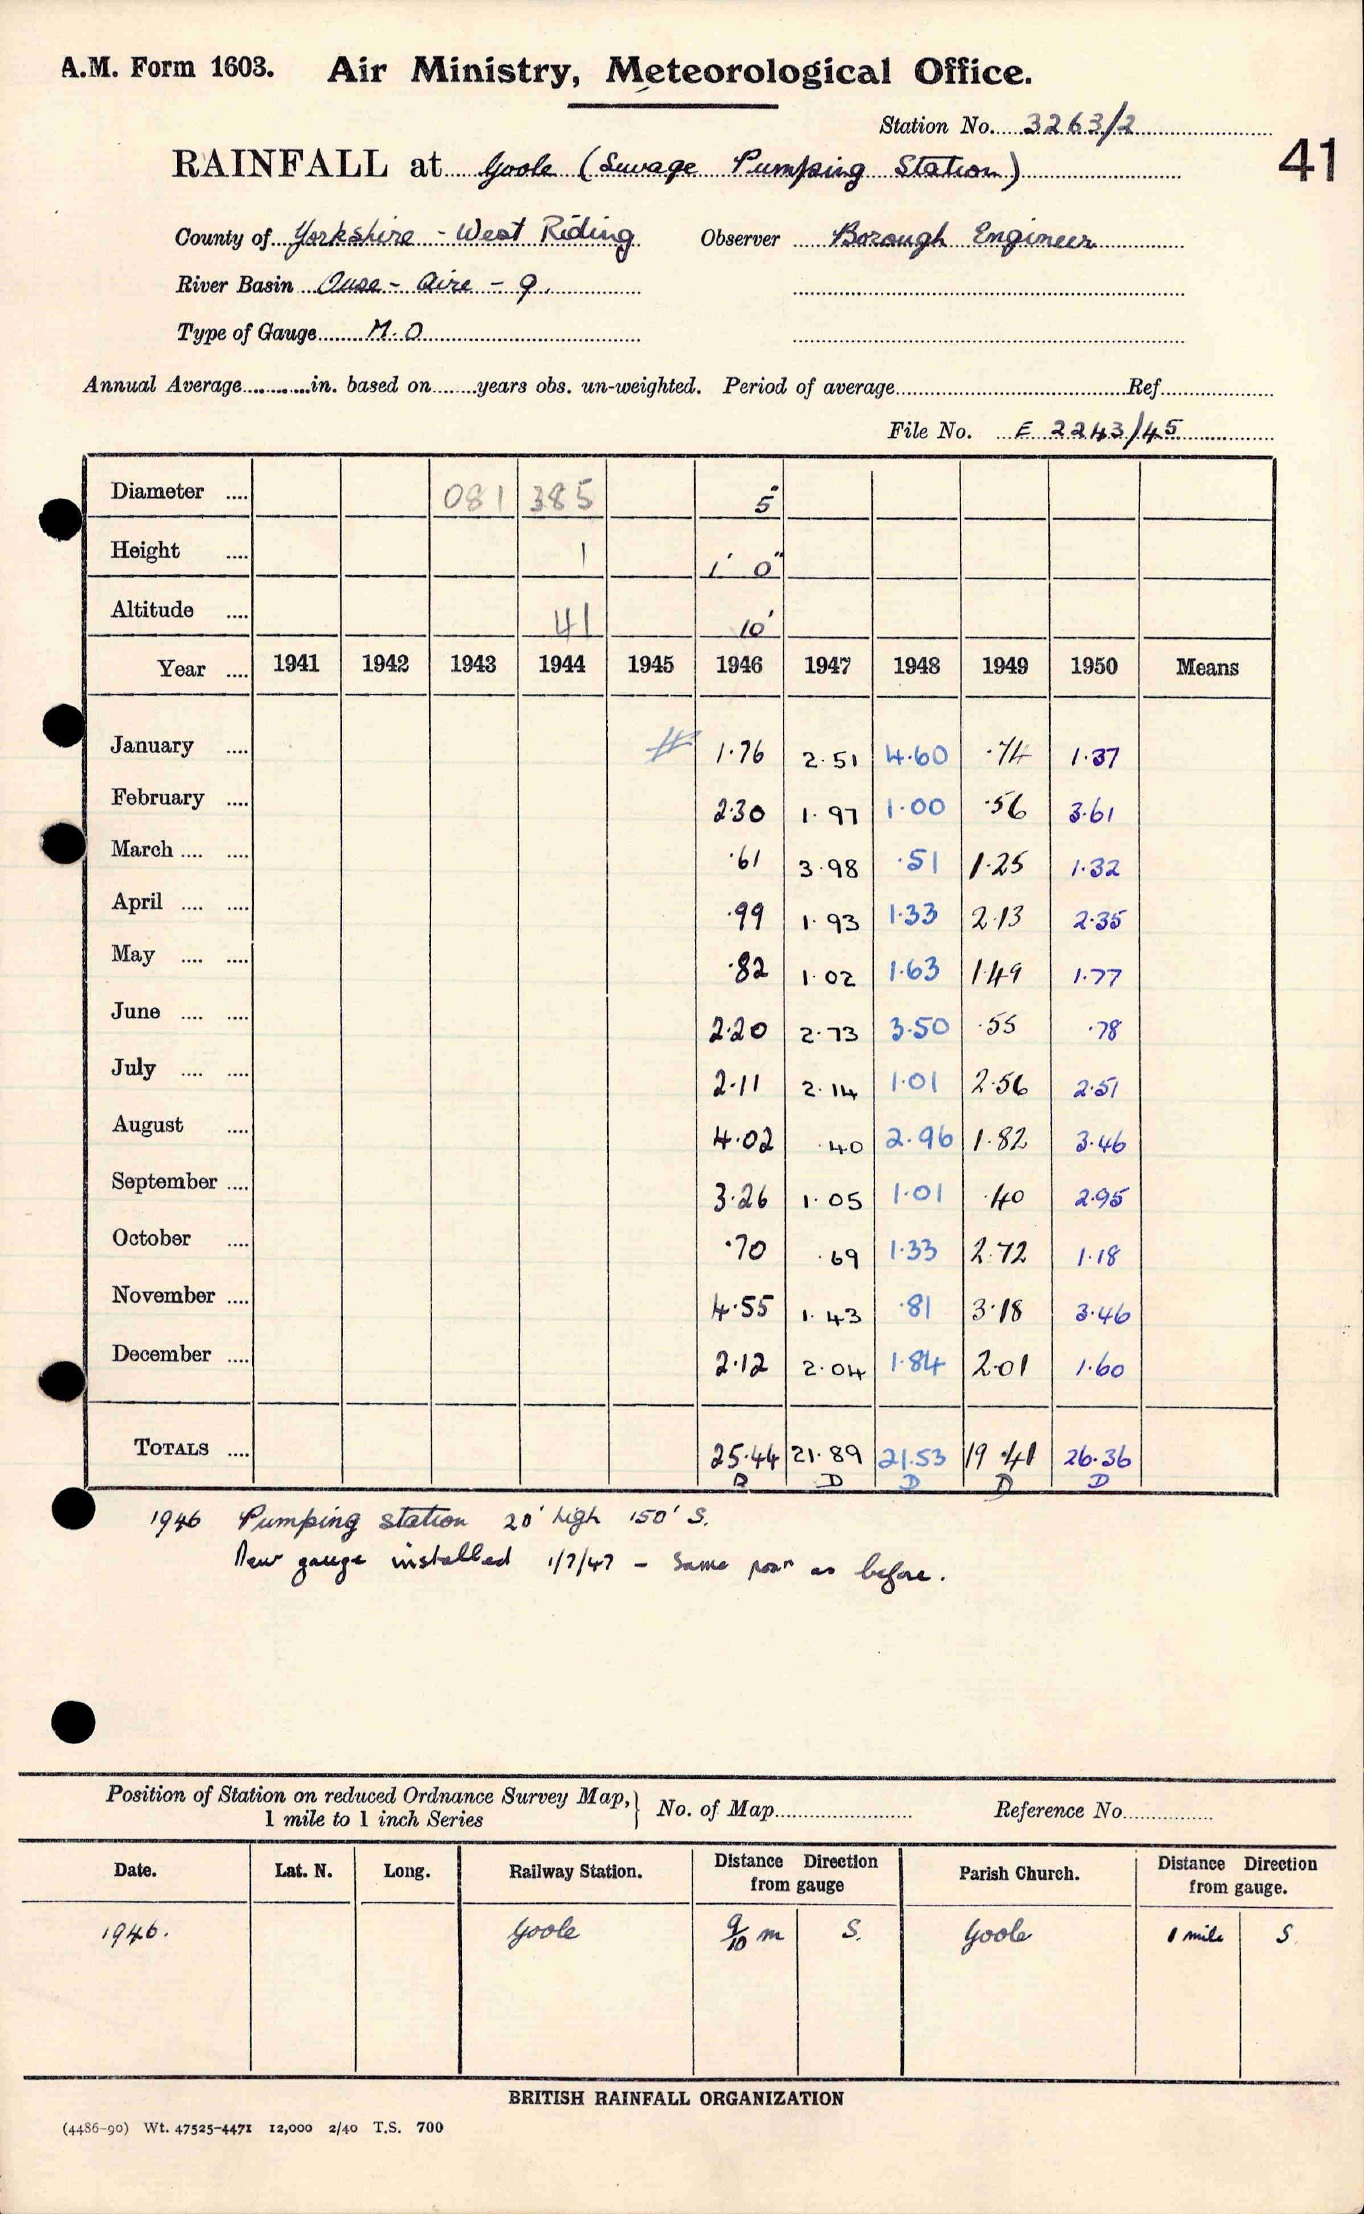 A.M. Form 1603. Air Ministry, Meteorological Office.
Station No. 3263/2
41
RAINFALL at Goole (Sewage Pumping Station)
County of Yorkshire - West Riding Observer Borough Engineer
River Basin Ouse - Aire - 9.
Type of Gauge M.O
Annual Average in. based on years obs. un-weighted. Period of average Ref
File No. E 2243/45
Diameter 081 385 5"
Height 1 1' 0"
Altitude 41 10'
Year 1941 1942 1943 1944 1945 1946 1947 1948 1949 1950 Means
January 1.76 2.51 4.60 .74 1.37
February 2.30 1.97 1.00 .56 3.61
March .61 3.98 .51 1.25 1.32
April .99 1.93 1.33 2.13 2.35
May .82 1.02 1.63 1.49 1.77
June 2.20 2.73 3.50 .55 .78
July 2.11 2.14 1.01 2.56 2.51
August 4.02 .40 2.96 1.82 3.46
September 3.26 1.05 1.01 .40 2.95
October .70 .69 1.33 2.72 1.18
November 4.55 1.43 .81 3.18 3.46
December 2.12 2.04 1.84 2.01 1.60
TOTALS 25.44 21.89 21.53 19.41 26.36
D D D D D
1946 Pumping station 20' high 150' S.
New gauge installed 1/7/47 - Same posn as before.
Position of Station on reduced Ordnance Survey Map, } No. of Map Reference No
1 mile to 1 inch Series
Date. Lat. N. Long. Railway Station. Distance Direction from gauge Parish Church. Distance Direction from gauge.
1946. Goole 9/10 m S. Goole 1 mile S.
BRITISH RAINFALL ORGANIZATION
(4486-90) Wt. 47525-4471 12,000 2/40 T.S. 700